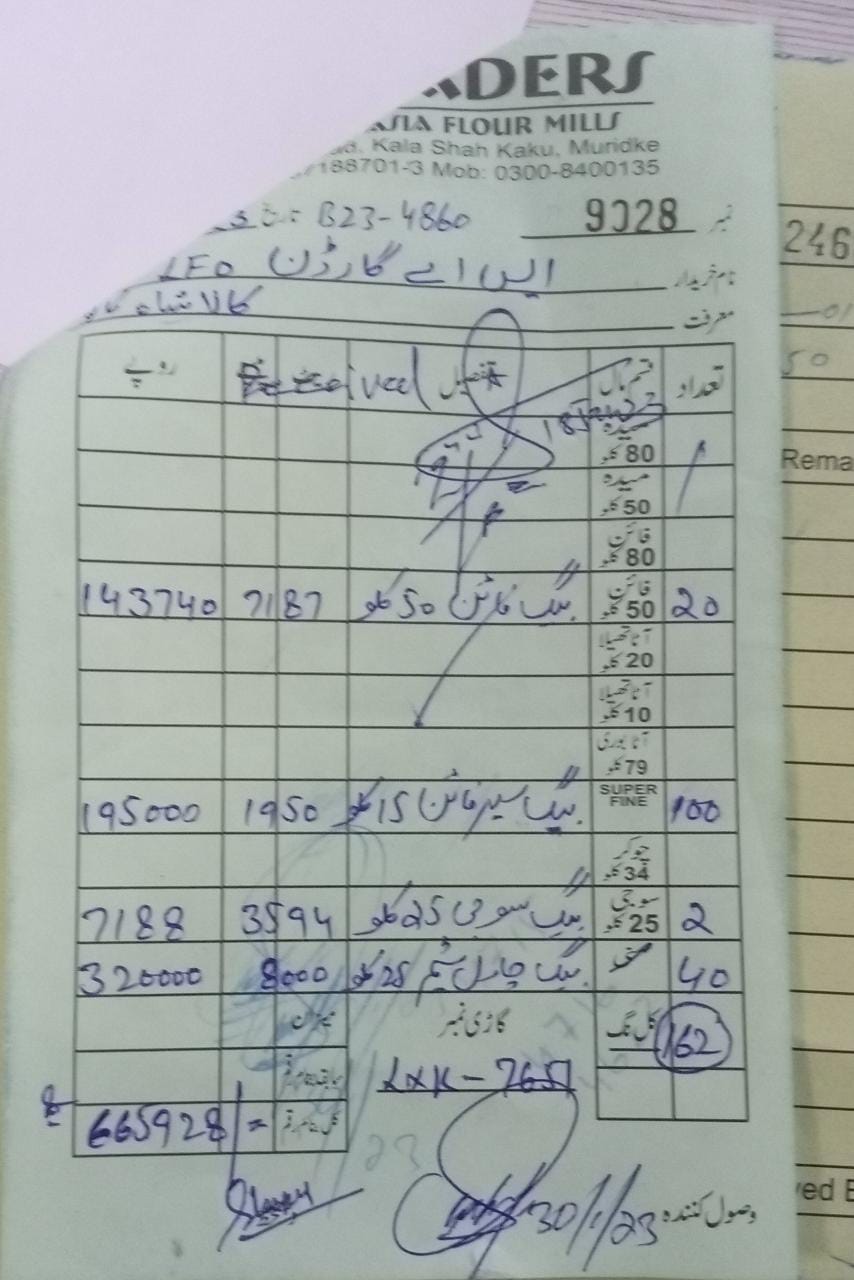 ADERS
ASIA FLOUR MILLS
Kala Shah Kaku, Muridke
188701-3 Mob: 0300-8400135
B23-4860
نمبر 9028
نام خریدار ایس اے گارڈن LFO
معرفت کالا شاہ
تعداد قسم مال تفصیل روپے
میدہ 80 کلو
میدہ 50 کلو
فائن 80 کلو
20 فائن 50 کلو بیگ فائن 50 کلو 7187 143740
آٹا تھیلا 20 کلو
آٹا تھیلا 10 کلو
آٹا بوری 79 کلو
100 SUPER FINE بیگ سپر فائن 15 کلو 1950 195000
چوکر 34 کلو
2 سوجی 25 کلو بیگ سوجی 25 کلو 3594 7188
40 بیگ چاول 25 کلو 8000 320000
162 کل نگ گاڑی نمبر میزان
LXK-7651 سابقہ بقایا رقم
کل بقایا رقم = 665928/
وصول کنندہ 30/1/23
246
50
Rema